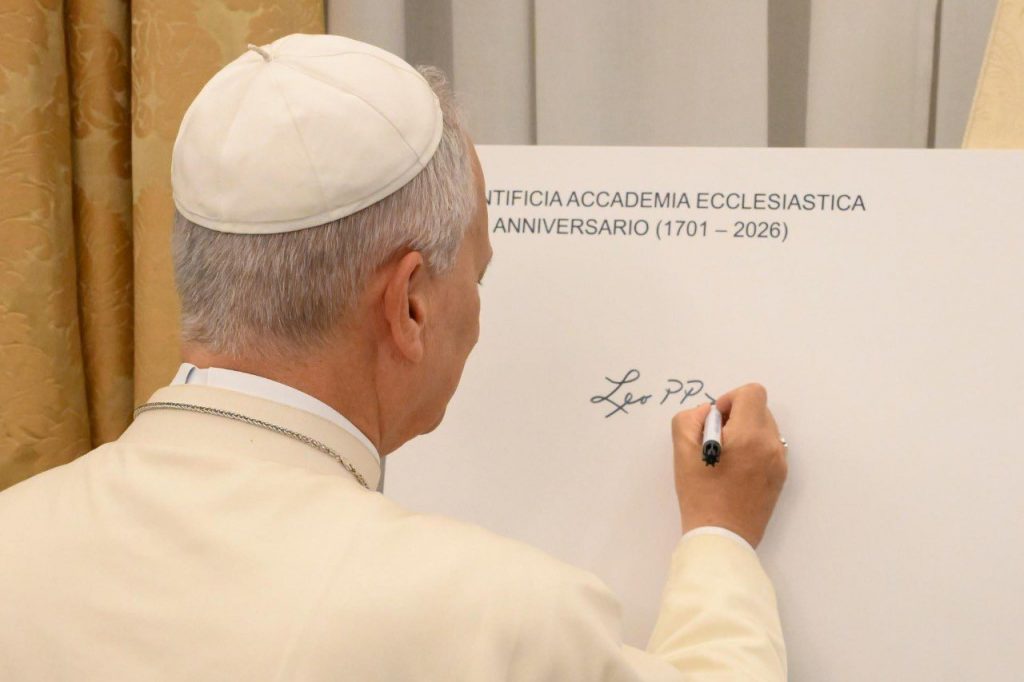 NTIFICIA ACCADEMIA ECCLESIASTICA
ANNIVERSARIO (1701 – 2026)
Leo PP